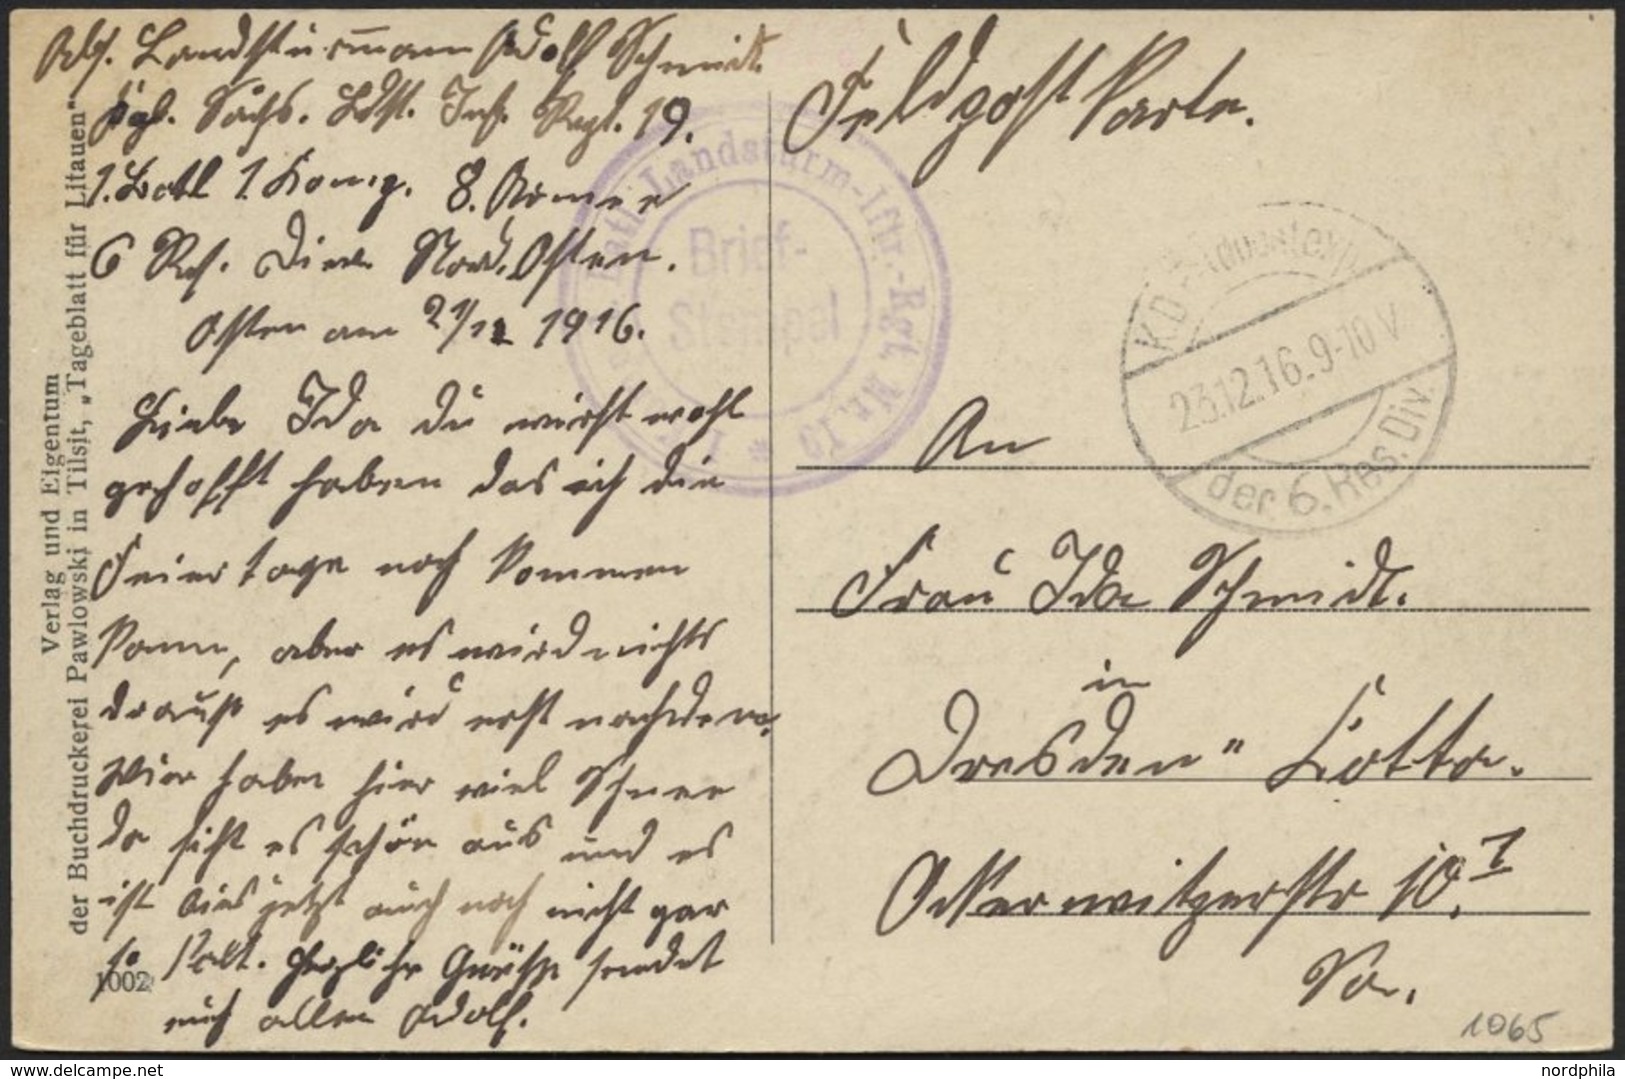 Abs. Landsturmmann Adolf Schmidt.
Kgl. Sächs. Ldst. Inf. Regt. 19.
1. Batl 1 Komp. 8. Armee
6 Res. Div. Nord. Osten.
Osten am 21/12 1916.
Liebe Ida du wirst wohl
gehofft haben das ich die
Feiertage noch kommen
kann, aber es wird nichts
drauß es wird erst nachdem.
Wier haben hier viel Schnee
da sieht es schön aus und es
ist bies jetzt auch noch nicht gar
so kalt. Herzliche Grüße sendet
euch allen Adolf.
Verlag und Eigentum
der Buchdruckerei Pawlowski in Tilsit, „Tageblatt für Litauen“
1002
Landsturm-Iftr.-Rgt. Nr. 19
Brief-
Stempel
Feldpost Karte.
K.D.
23.12.16.9-10V.
der 6. Res. Div.
An
Frau Ida Schmidt.
in
Dresden" Cotta.
Osterwitzerstr 10. I
Sa.
1065
www.delcampe.net
nordphila